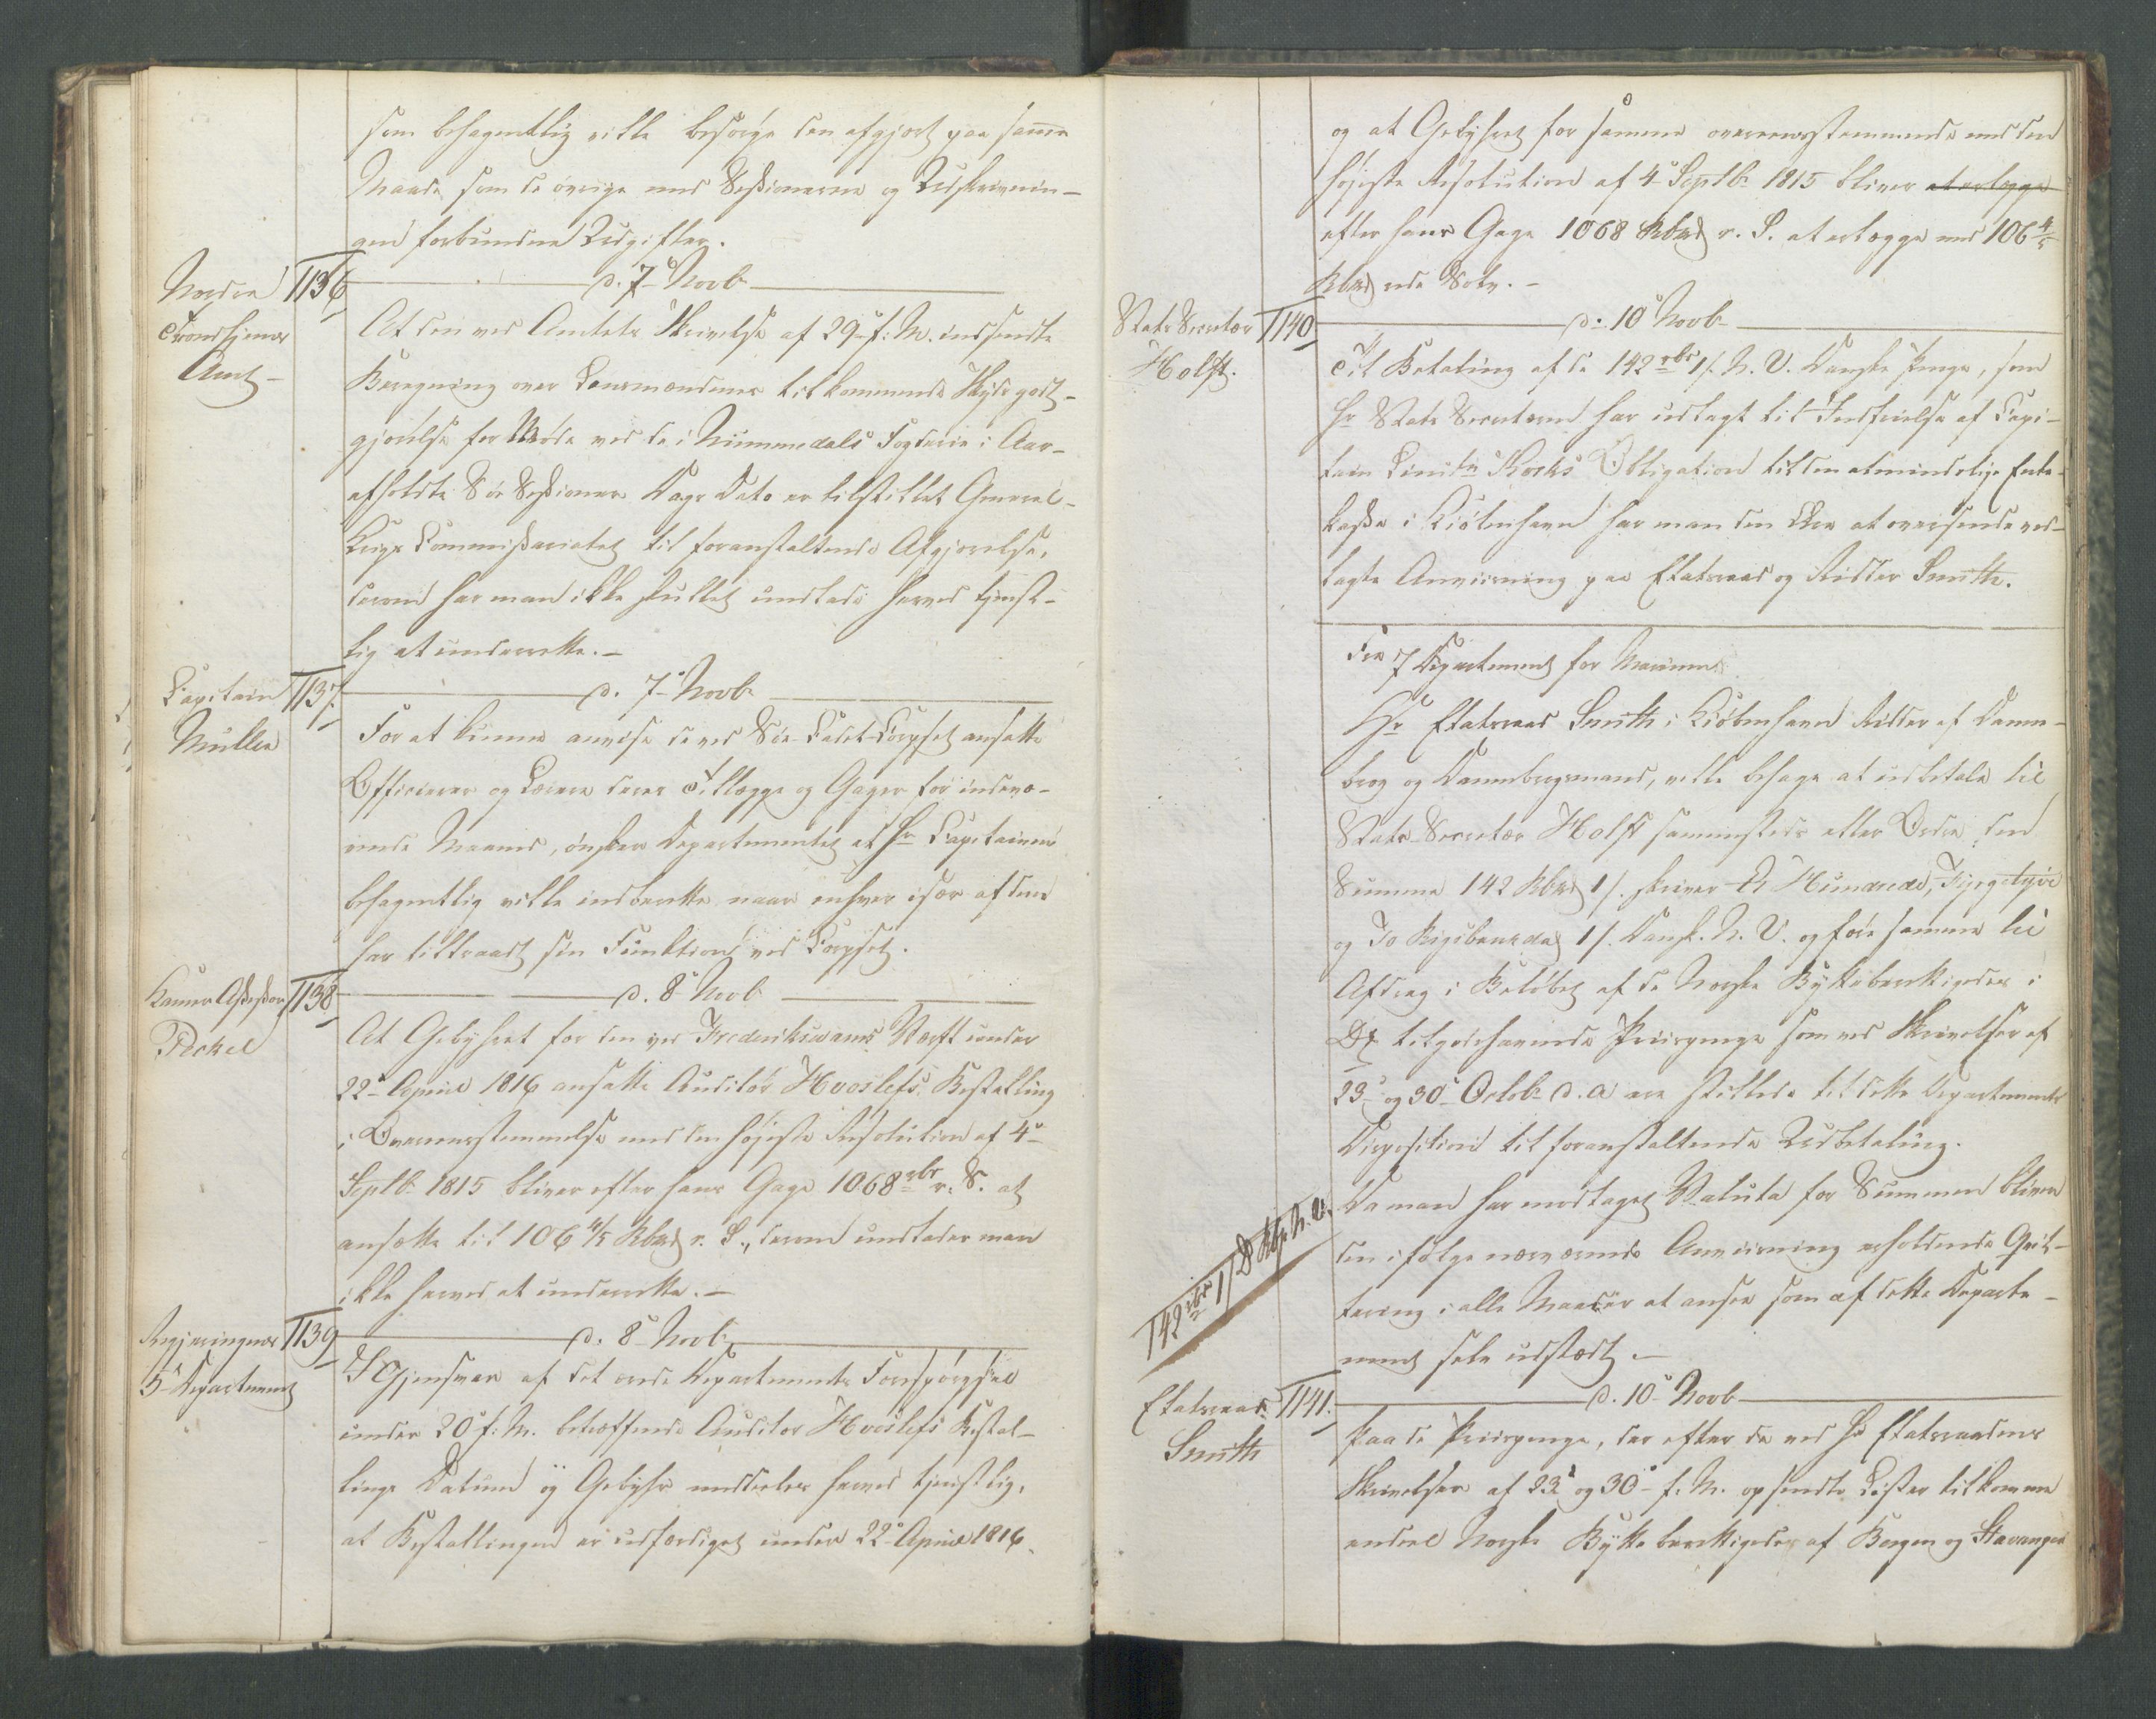 som behagentlig ville besørge den afgjort paa samme
Maade som de øvrige med Sessionerne og Udskrivnin-
gen forbundne Udgifter.
Nordre
Trondhjems
Amt -
1136
d. 7de Novb.
At den ved Amtets Skrivelse af 29de f: M. indsendte
Beregning over Lensmændenes tilkommende Skydsgodt-
gjørelse for Møde ved de i Nummedals Fogderie i Aar
afholdte Søe Sessioner Dags Dato er tilstillet General-
Krigs Commissariatet til foranstaltende Afgjørelse,
derom har man ikke skullet undlade herved tjenst-
lig at underrette. -
Capitain
Müller
1137.
d. 7de Novb.
For at kunne anvise de ved Søe-Cadet-Corpset ansatte
Officierer og Lærere deres Tillægge og Gager for indevæ-
rende Maaned, ønsker Departementet at Hr Capitainen
behagentlig ville indberette naar enhver især af dem
har tiltraadt sin Funktion ved Corpset.
Kammer Assessor
Peckel
1138
d. 8de Novb
At Gebyhret for den ved Frederiksværns Værft under
22de April 1816 ansatte Auditør Hvoslefs Bestalling
i Overeensstemmelse med den højeste Resolution af 4de
Septb. 1815 bliver efter hans Gage 1068 rbd r. S. at
ansætte til 106 4/5 Rbd r. S., derom undlader man
ikke herved at underrette. -
Regjeringens
5te Departement
1139
d. 8de Novb.
I Gjensvar af det ærede Departements Forespørgsel
under 20de f: M. betræffende Auditør Hvoslefs Bestal-
lings Datum og Gebyhr meddeles herved tjenstlig,
at Bestallingen er udfærdiget under 22de April 1816,
og at Gebyhret for samme overeensstemmende med den
højeste Resolution af 4de Septb. 1815 bliver at erlægge
efter hans Gage 1068 Rbd r. S. at erlægge med 106 4/5
Rbd rede Sølv. -
Stats Secretær
Holst.
1140
d. 10de Novb
Til Betaling af de 142 rbd 1 s. N. V. Danske Penge, som
Hr Stats Secretæren har udlagt til Indfrielse af Capi-
tain Lieutn Kocks Obligation til den almindelige Enke-
kasse i Kiöbenhavn har man den Ære at oversende ved-
lagte Anviisning paa Etatsraad og Ridder Smith.
Fra 7 Departement for Marinen
Hr Etatsraad Smith i Kiöbenhavn Ridder af Danne-
brog og Dannebrogsmand, ville behage at udbetale til
Stats-Secretær Holst sammesteds eller Ordre, den
Summa 142 Rbd 1 s. skriver Et Hundrede, Fyrgetyve
og To Rigsbankdal 1 s. Dansk. N. V. og føre samme til
Afdrag i Beløbet af de Norske Bytteberettigedes i
tilgodehavende Priispenge som ved Skrivelser af
23de og 30de Octob. d. A ere stillede til dette Departements
Disposition til foranstaltende Udbetaling.
Da man har modtaget Valuta for Summen bliver
den ifølge nærværende Anviisning erholdende Qvit-
tering i alle Maader at ansee som af dette Departe-
ment selv udstædt. -
142 rbd 1 s D Rbp. N. V.
Etatsraad
Smith
1141.
d. 10de Novb
Paa de Priispenge, der efter de ved Hr Etatsraadens
Skrivelser af 23de og 30de f. M. opsendte Lister tilkomme
endeel Norske Bytteberettigede af Bergen og Stavanger